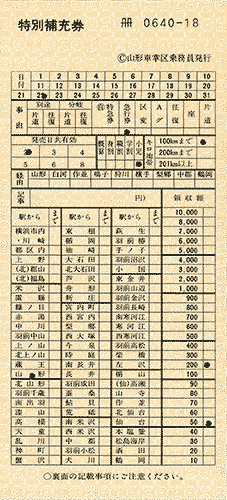 特別補充券 冊 0640-18
©山形車掌区乗務員発行
日付 1 2 3 4 5 6 7 8 9 10
11 12 13 14 15 16 17 18 19 20
21 22 23 24 25 26 27 28 29 30 31
事由 別途 分岐
片道 往復 片道 往復 特急券 急行券 区変 Aグ 往復 座席 片道
発売日共有効
2 3 4
5 6 8
身割 職割 学割 小児
キロ地帯
100kmまで
200kmまで
201km以上
経由 山形 白河 作並 鳴子 狩川 横手 梨郷 中郡 鶴岡
記事 円) 領収額
駅から まで 駅から まで 10,000
横浜市内 東根 萩生 7,000
・川崎 楯岡 羽前椿 6,000
都区内 袖崎 手ノ子 5,000
上野 大石田 羽前沼沢 4,000
(北)郡山 北大石田 小国 3,000
(北)福島 芦沢 東金井 2,000
米沢 舟形 羽前山辺 1,000
置賜 新庄 羽前金沢 900
糠ノ目 宮内町 羽前長崎 800
赤湯 西宮内 南寒河江 700
中川 梨郷 寒河江 600
羽前中山 西大塚 西寒河江 500
上ノ山 今泉 羽前高松 400
北上ノ山 時庭 柴橋 300
蔵王 南長井 左沢 200
山形 長井 楯山 100
北山形 羽前成田 (仙)高瀬 90
羽前千歳 蚕桑 山寺 80
南出羽 鮎貝 作並 70
漆山 荒砥 北仙台 60
高擶 南米沢 仙台 50
天童 西米沢 本塩釜 40
乱川 中郡 松島海岸 30
神町 羽前小松 酒田 20
蟹沢 犬川 鶴岡 10
○裏面の記載事項にご注意ください。